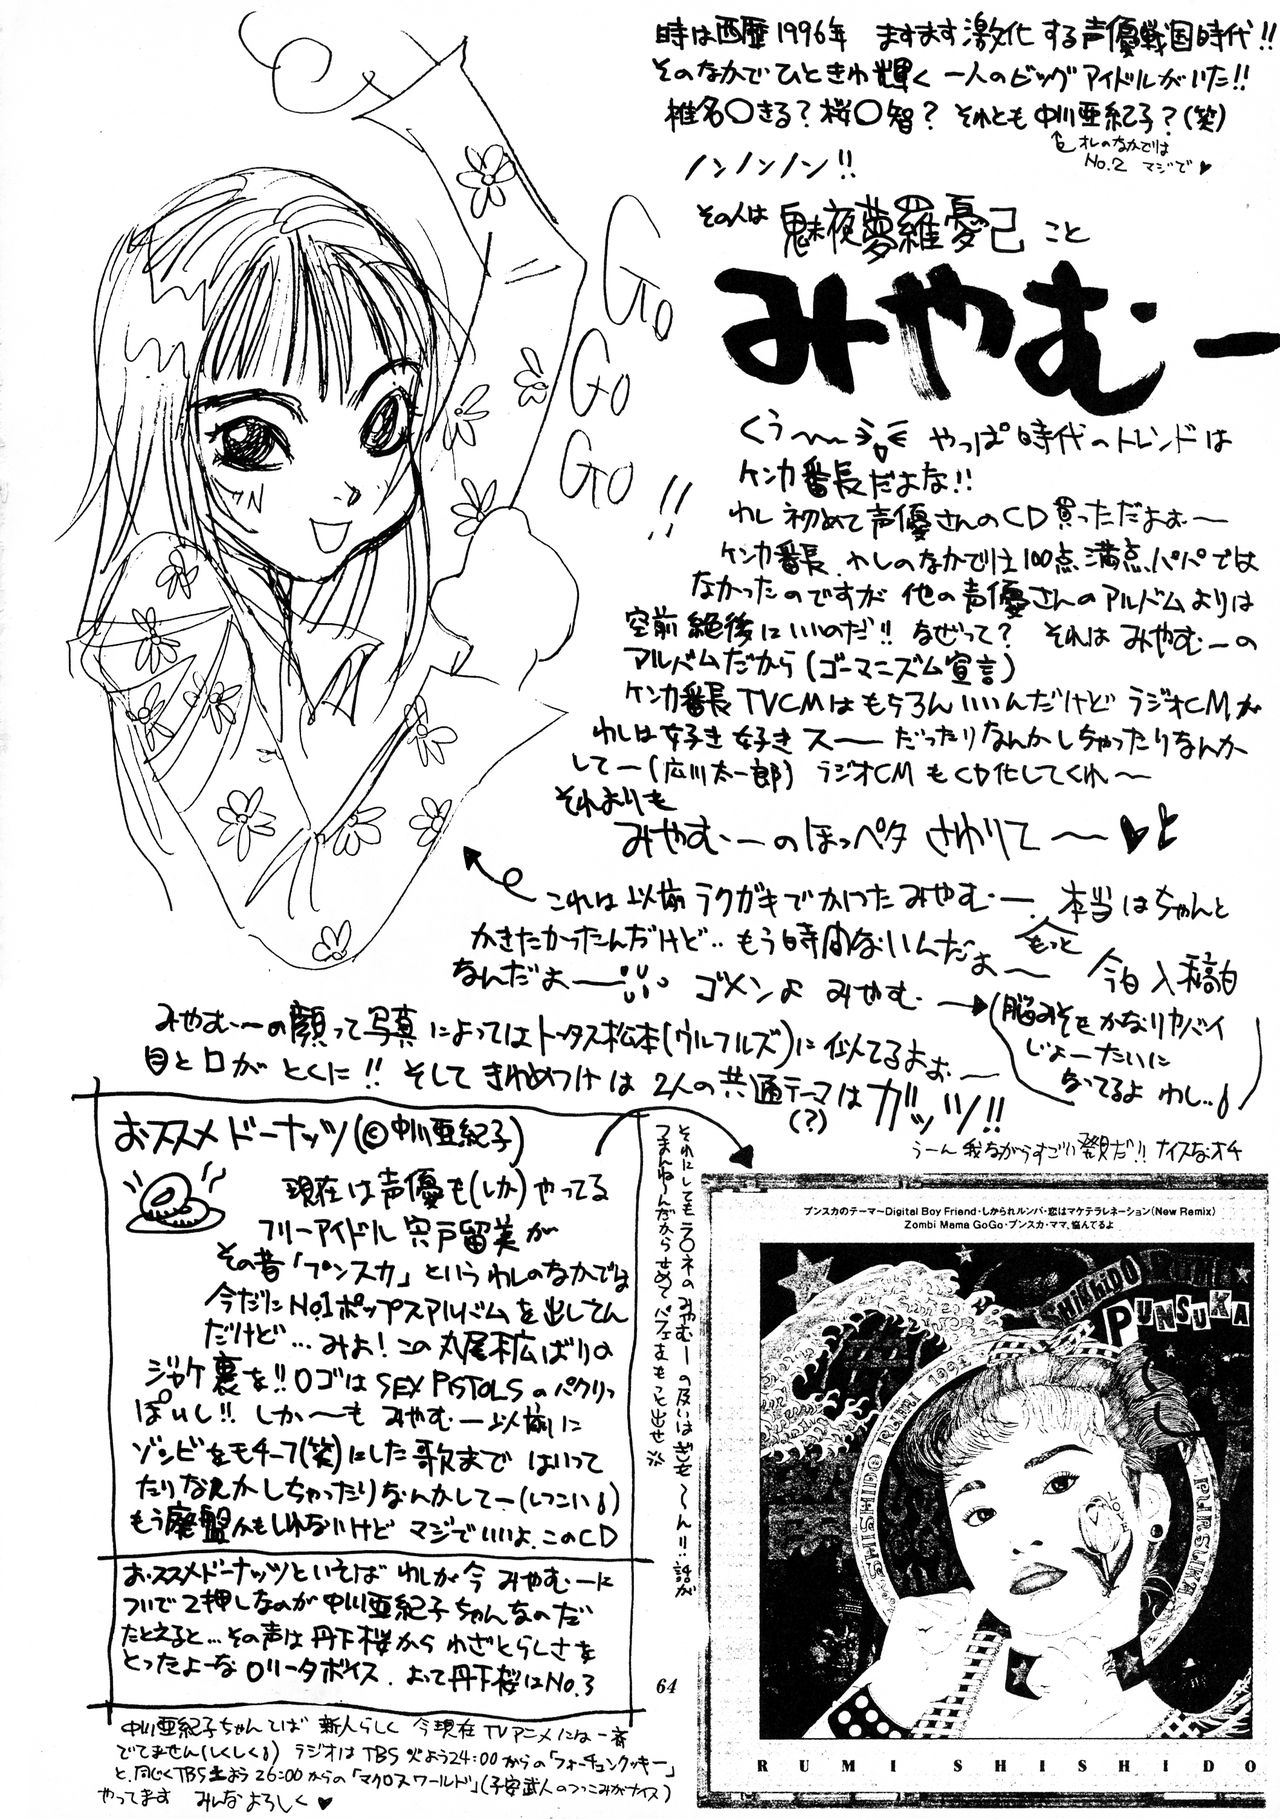 時は西歴1996年 ますます激化する声優戦国時代!!
そのなかでひときわ輝く 一人のビッグアイドルがいた!!
椎名〇きる?桜〇智? それとも中川亜紀子?(笑)
オレのなかでは
No.2 マジで♥
ノンノンノン!!
その人は 魅夜夢羅憂己 こと
みやむー
Go
Go
Go!!
くぅ〜 やっぱ時代のトレンドは
ケンカ番長だよな!!
わし初めて声優さんのCD買っただよぉ〜
ケンカ番長、わしのなかでは100点満点パパでは
なかったのですが 他の声優さんのアルバムよりは
空前絶後にいいのだ!! なぜって? それは みやむーの
アルバムだから(ゴーマニズム宣言)
ケンカ番長TVCMはもちろんいいんだけど ラジオCMが
わしは好き好きスーだったりなんかしちゃったりなんか
してー(広川太一郎) ラジオCMもCD化してくれ〜
それよりも
みやむーのほっペタ さわりて〜♥と
これは以前ラクガキでかいたみやむー、本当はちゃんと
かきたかったんだけど‥もう時間ないんだよぉ〜
もっと
なんだよぉー ゴメンよ みやむー
今日入稿日
(脳みそもかなりヤバイ
じょーたいに
なってるよ わし‥)
みやむーの顔って写真によってはトータス松本(ウルフルズ)に似てるよぉ〜
目と口がとくに!! そして きわめつけは 2人の共通テーマはガッツ!!
(?)
うーん 我ながらすごい発見だ!! ナイスなオチ
おススメドーナッツ(©中川亜紀子)
現在は声優も(しか)やってる
フリーアイドル 宍戸留美が
その昔「プンスカ」というわしのなかでは
今だにNo.1ポップスアルバムを出してん
だけど…みよ!この丸尾末広ばりの
ジャケ裏を!!ロゴはSEX PISTOLSのパクリっ
ぽいし!! しか〜も みやむー以前に
ゾンビをモチーフ(笑)にした歌まで はいって
たりなんかしちゃったりなんかしてー(しつこい)
もう廃盤かもしれないけど マジでいいよ、このCD
おススメドーナッツといえば わしが今 みやむーに
ついで2押しなのが中川亜紀子ちゃんなのだ
たとえると…その声は丹下桜から わざとらしさを
とったよーなロリータボイス、よって丹下桜はNo.3
中川亜紀子ちゃんてば 新人らしく 今現在TVアニメには一斉
でてません(しくしく) ラジオはTBS火よう24:00からの「フォーチュンクッキー」
と、同じくTBS土よう26:00からの「マクロスワールド」(子安武人のつっこみがナイス)
やってます みんなよろしく♥
それにしてもラ〇ネのみやむーの扱いはぎも〜ん!! 話が
つまんねーんだからせめてパフェをもっと出せ
64
プンスカのテーマ〜Digital Boy Friend・しかられルンバ・恋はマケテラレネーション(New Remix)
Zombi Mama GoGo・プンスカ・ママ、悩んでるよ
SHISHIDO RUMI
PUNSUKA
SHISHIDO RUMI 1994
PUNSUKA
LOVE
RUMI SHISHIDO